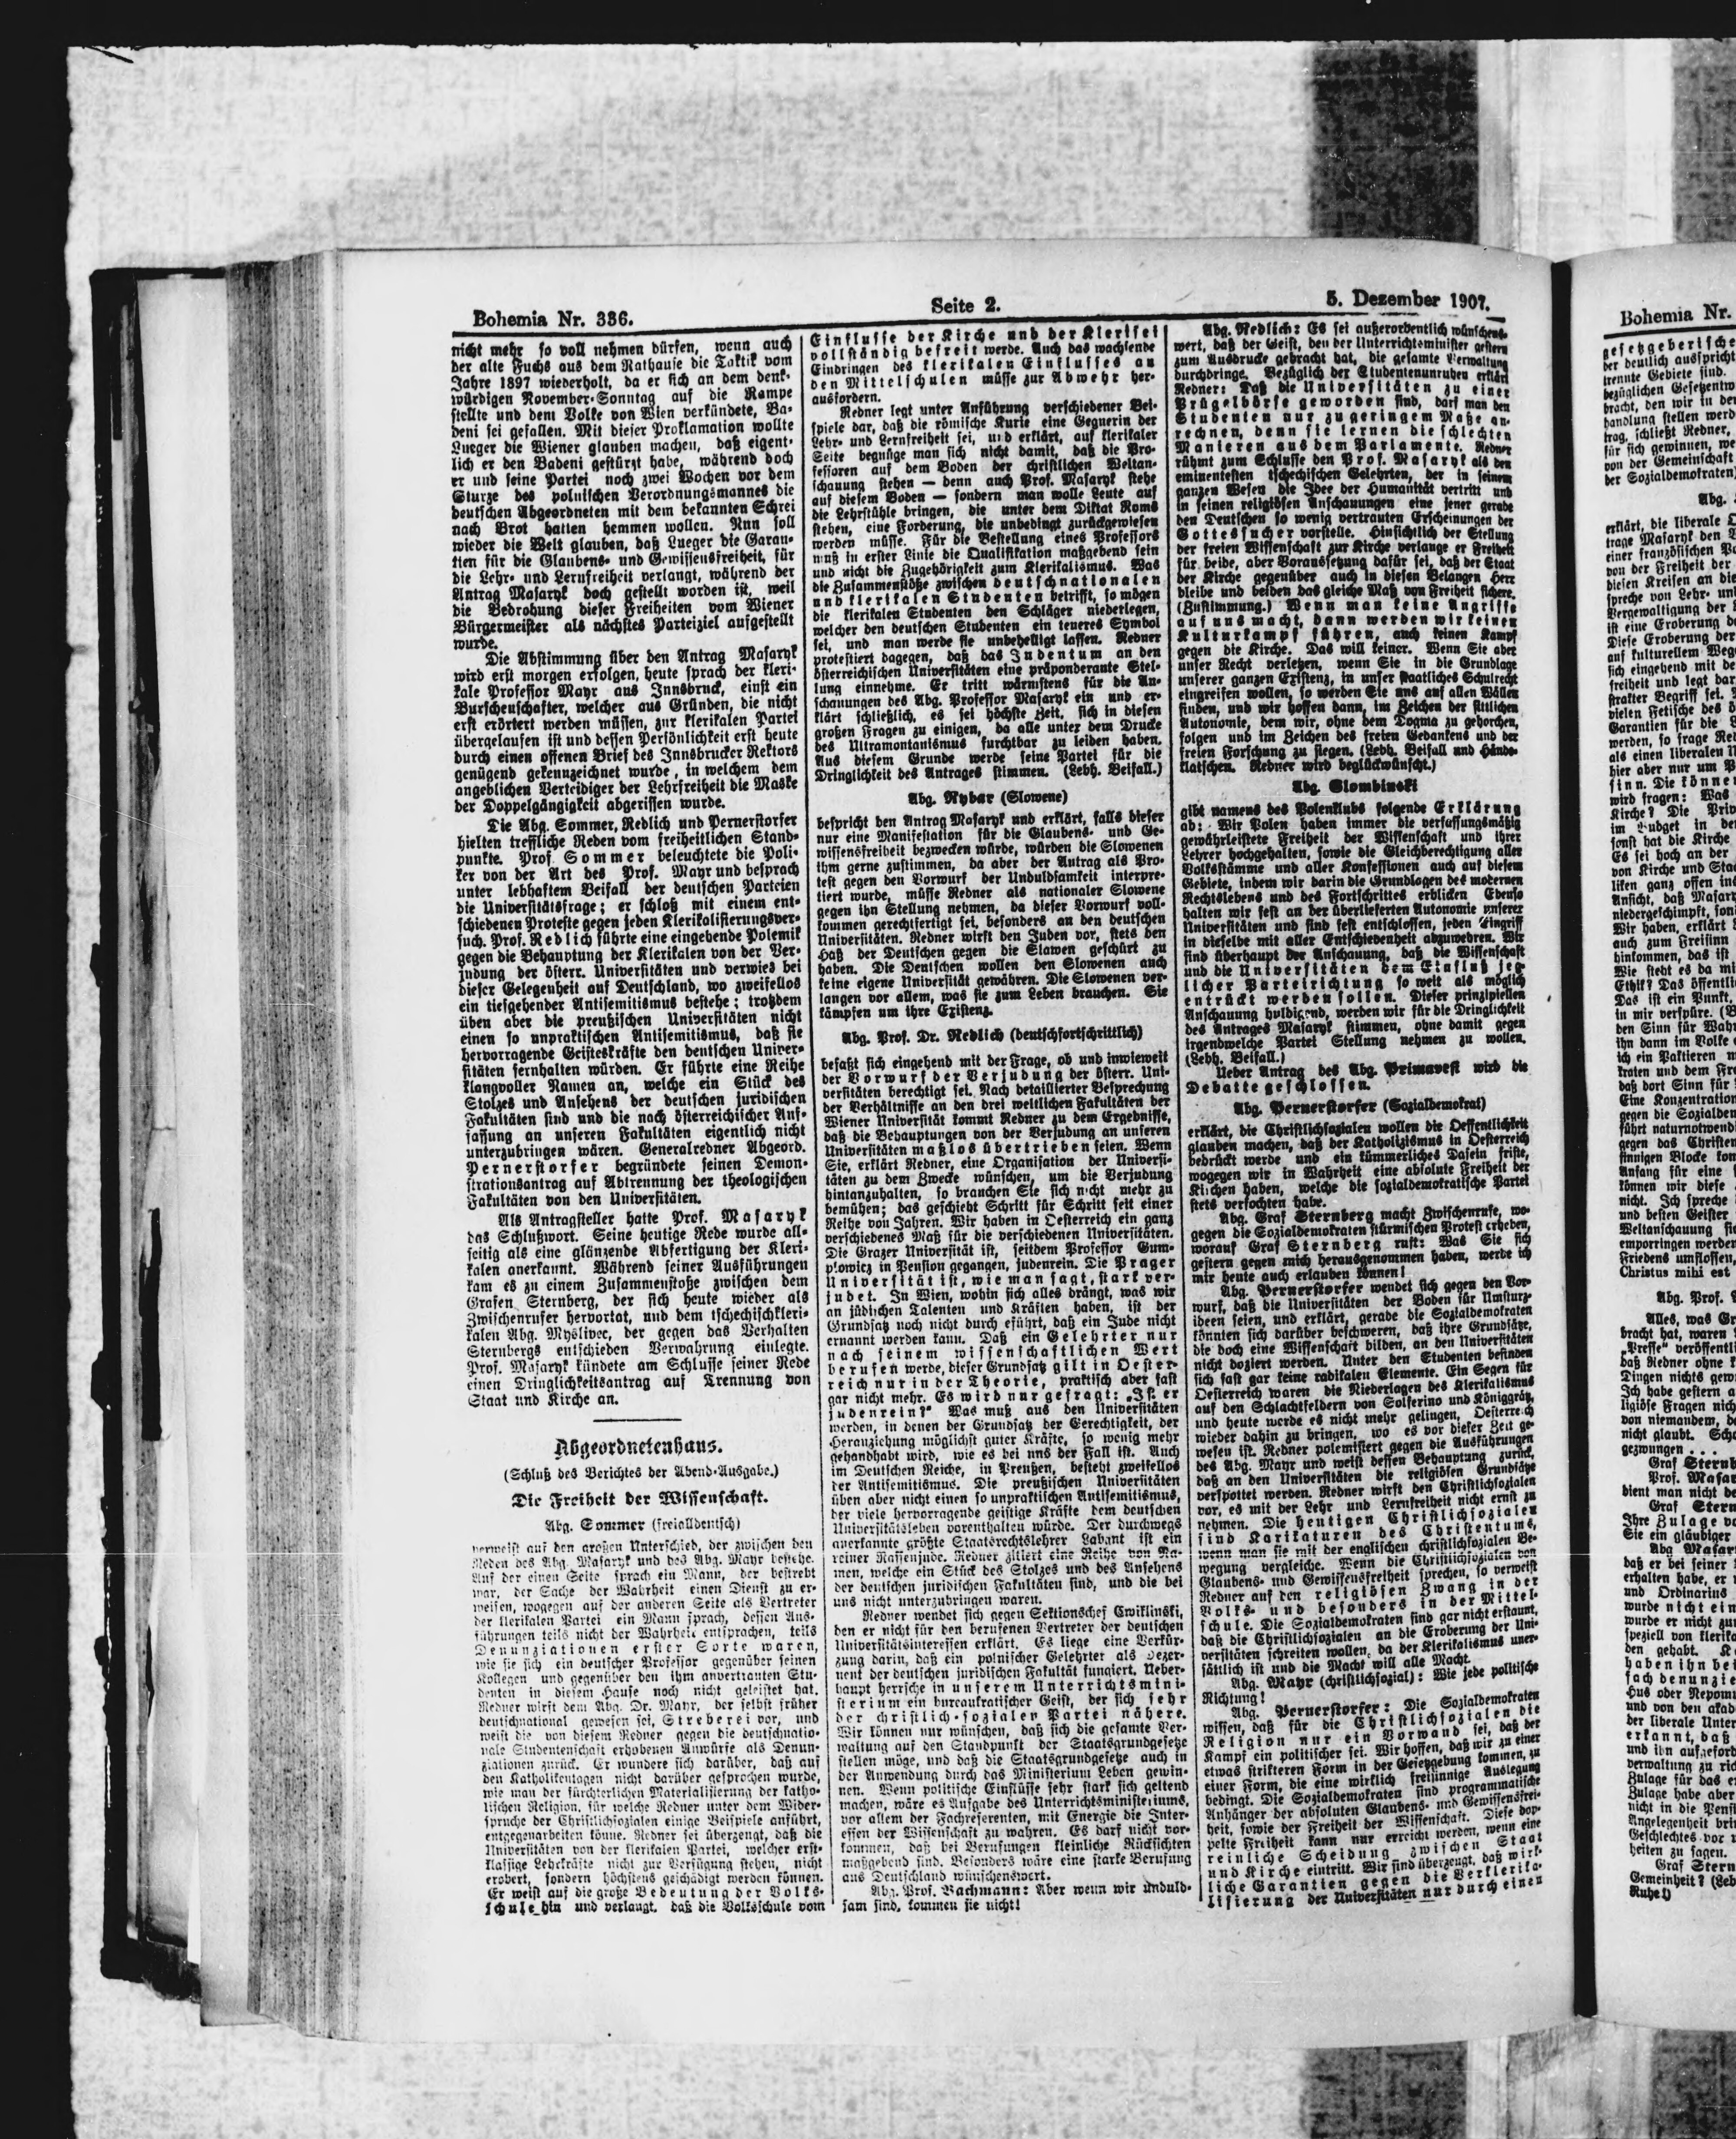 Bohemia Nr. 336.
Seite 2.
5. Dezember 1907.
nicht mehr so voll nehmen dürfen, wenn auch
der alte Fuchs aus dem Rathause die Taktik vom
Jahre 1897 wiederholt, da er sich an dem denk-
würdigen November-Sonntag auf die Rampe
stellte und dem Volke von Wien verkündete, Ba-
deni sei gefallen. Mit dieser Proklamation wollte
Lueger die Wiener glauben machen, daß eigent-
lich er den Badeni gestürzt habe, während doch
er und seine Partei noch zwei Wochen vor dem
Sturze des polnischen Verordnungsmannes die
deutschen Abgeordneten mit dem bekannten Schrei
nach Brot hatten hemmen wollen. Nun soll
wieder die Welt glauben, daß Lueger die Garan-
tien für die Glaubens- und Gewissensfreiheit, für
die Lehr- und Lernfreiheit verlangt, während der
Antrag Masaryk doch gestellt worden ist, weil
die Bedrohung dieser Freiheiten vom Wiener
Bürgermeister als nächstes Parteiziel aufgestellt
wurde.
Die Abstimmung über den Antrag Masaryk
wird erst morgen erfolgen, heute sprach der kleri-
kale Professor Mayr aus Innsbruck, einst ein
Burschenschafter, welcher aus Gründen, die nicht
erst erörtert werden müssen, zur klerikalen Partei
übergelaufen ist und dessen Persönlichkeit erst heute
durch einen offenen Brief des Innsbrucker Rektors
genügend gekennzeichnet wurde, in welchem dem
angeblichen Verteidiger der Lehrfreiheit die Maske
der Doppelgängigkeit abgerissen wurde.
Die Abg. Sommer, Redlich und Pernerstorfer
hielten treffliche Reden vom freiheitlichen Stand-
punkte. Prof. Sommer beleuchtete die Poli-
ker von der Art des Prof. Mayr und besprach
unter lebhaftem Beifall der deutschen Parteien
die Universitätsfrage; er schloß mit einem ent-
schiedenen Proteste gegen jeden Klerikalisierungsver-
such. Prof. Redlich führte eine eingehende Polemik
gegen die Behauptung der Klerikalen von der Ver-
judung der österr. Universitäten und verwies bei
dieser Gelegenheit auf Deutschland, wo zweifellos
ein tiefgehender Antisemitismus bestehe; trotzdem
üben aber die preußischen Universitäten nicht
einen so unpraktischen Antisemitismus, daß sie
hervorragende Geisteskräfte den deutschen Univer-
sitäten fernhalten würden. Er führte eine Reihe
klangvoller Namen an, welche ein Stück des
Stolzes und Ansehens der deutschen juridischen
Fakultäten sind und die nach österreichischer Auf-
fassung an unseren Fakultäten eigentlich nicht
unterzubringen wären. Generalredner Abgeord.
Pernerstorfer begründete seinen Demon-
strationsantrag auf Abtrennung der theologischen
Fakultäten von den Universitäten.
Als Antragsteller hatte Prof. Masaryk
das Schlußwort. Seine heutige Rede wurde all-
seitig als eine glänzende Abfertigung der Kleri-
kalen anerkannt. Während seiner Ausführungen
kam es zu einem Zusammenstoße zwischen dem
Grafen Sternberg, der sich heute wieder als
Zwischenrufer hervortat, und dem tschechischkleri-
kalen Abg. Myslivec, der gegen das Verhalten
Sternbergs entschieden Verwahrung einlegte.
Prof. Masaryk kündete am Schlusse seiner Rede
einen Dringlichkeitsantrag auf Trennung von
Staat und Kirche an.
Abgeordnetenhaus.
(Schluß des Berichtes der Abend-Ausgabe.)
Die Freiheit der Wissenschaft.
Abg. Sommer (freialldeutsch)
verweist auf den großen Unterschied, der zwischen den
Reden des Abg. Masaryk und des Abg. Mayr bestehe.
Auf der einen Seite sprach ein Mann, der bestrebt
war, der Sache der Wahrheit einen Dienst zu er-
weisen, wogegen auf der anderen Seite als Vertreter
der klerikalen Partei ein Mann sprach, dessen Aus-
führungen teils nicht der Wahrheit entsprachen, teils
Denunziationen erster Sorte waren,
wie sie sich ein deutscher Professor gegenüber seinen
Kollegen und gegenüber den ihm anvertrauten Stu-
denten in diesem Hause noch nicht geleistet hat.
Redner wirft dem Abg. Dr. Mayr, der selbst früher
deutschnational gewesen sei, Streberei vor, und
weist die von diesem Redner gegen die deutschnatio-
nale Studentenschaft erhobenen Anwürfe als Denun-
ziationen zurück. Er wundere sich darüber, daß auf
den Katholikentagen nicht darüber gesprochen wurde,
wie man der fürchterlichen Materialisierung der katho-
lischen Religion, für welche Redner unter dem Wider-
spruche der Christlichsozialen einige Beispiele anführt,
entgegenarbeiten könne. Redner sei überzeugt, daß die
Universitäten von der klerikalen Partei, welcher erst-
klassige Lehrkräfte nicht zur Verfügung stehen, nicht
erobert, sondern höchstens geschädigt werden können.
Er weist auf die große Bedeutung der Volks-
schule hin und verlangt, daß die Volksschule vom
Einflusse der Kirche und der Klerisei
vollständig befreit werde. Auch das wachsende
Eindringen des klerikalen Einflusses an
den Mittelschulen müsse zur Abwehr her-
ausfordern.
Redner legt unter Anführung verschiedener Bei-
spiele dar, daß die römische Kurie eine Gegnerin der
Lehr- und Lernfreiheit sei, und erklärt, auf klerikaler
Seite begnüge man sich nicht damit, daß die Pro-
fessoren auf dem Boden der christlichen Weltan-
schauung stehen — denn auch Prof. Masaryk stehe
auf diesem Boden — sondern man wolle Leute auf
die Lehrstühle bringen, die unter dem Diktat Roms
stehen, eine Forderung, die unbedingt zurückgewiesen
werden müsse. Für die Bestellung eines Professors
muß in erster Linie die Qualifikation maßgebend sein
und nicht die Zugehörigkeit zum Klerikalismus. Was
die Zusammenstöße zwischen deutschnationalen
und klerikalen Studenten betrifft, so mögen
die klerikalen Studenten den Schläger niederlegen,
welcher den deutschen Studenten ein teueres Symbol
sei, und man werde sie unbehelligt lassen. Redner
protestiert dagegen, daß das Judentum an den
österreichischen Universitäten eine präponderante Stel-
lung einnehme. Er tritt wärmstens für die An-
schauungen des Abg. Professor Masaryk ein und er-
klärt schließlich, es sei höchste Zeit, sich in diesen
großen Fragen zu einigen, da alle unter dem Drucke
des Ultramontanismus furchtbar zu leiden haben.
Aus diesem Grunde werde seine Partei für die
Dringlichkeit des Antrages stimmen. (Lebh. Beifall.)
Abg. Rybar (Slowene)
bespricht den Antrag Masaryk und erklärt, falls dieser
nur eine Manifestation für die Glaubens- und Ge-
wissensfreiheit bezwecken würde, würden die Slowenen
ihm gerne zustimmen, da aber der Antrag als Pro-
test gegen den Vorwurf der Unduldsamkeit interpre-
tiert wurde, müsse Redner als nationaler Slowene
gegen ihn Stellung nehmen, da dieser Vorwurf voll-
kommen gerechtfertigt sei, besonders an den deutschen
Universitäten. Redner wirft den Juden vor, stets den
Haß der Deutschen gegen die Slawen geschürt zu
haben. Die Deutschen wollen den Slowenen auch
keine eigene Universität gewähren. Die Slowenen ver-
langen vor allem, was sie zum Leben brauchen. Sie
kämpfen um ihre Existenz.
Abg. Prof. Dr. Redlich (deutschfortschrittlich)
befaßt sich eingehend mit der Frage, ob und inwieweit
der Vorwurf der Verjudung der österr. Uni-
versitäten berechtigt sei. Nach detaillierter Besprechung
der Verhältnisse an den drei weltlichen Fakultäten der
Wiener Universität kommt Redner zu dem Ergebnisse,
daß die Behauptungen von der Verjudung an unseren
Universitäten maßlos übertrieben seien. Wenn
Sie, erklärt Redner, eine Organisation der Universi-
täten zu dem Zwecke wünschen, um die Verjudung
hintanzuhalten, so brauchen Sie sich nicht mehr zu
bemühen; das geschieht Schritt für Schritt seit einer
Reihe von Jahren. Wir haben in Oesterreich ein ganz
verschiedenes Maß für die verschiedenen Universitäten.
Die Grazer Universität ist, seitdem Professor Gum-
plowicz in Pension gegangen, judenrein. Die Prager
Universität ist, wie man sagt, stark ver-
judet. In Wien, wohin sich alles drängt, was wir
an jüdischen Talenten und Kräften haben, ist der
Grundsatz noch nicht durch eführt, daß ein Jude nicht
ernannt werden kann. Daß ein Gelehrter nur
nach seinem wissenschaftlichen Wert
berufen werde, dieser Grundsatz gilt in Oester-
reich nur in der Theorie, praktisch aber fast
gar nicht mehr. Es wird nur gefragt: „Ist er
judenrein?" Was muß aus den Universitäten
werden, in denen der Grundsatz der Gerechtigkeit, der
Heranziehung möglichst guter Kräfte, so wenig mehr
gehandhabt wird, wie es bei uns der Fall ist. Auch
im Deutschen Reiche, in Preußen, besteht zweifellos
der Antisemitismus. Die preußischen Universitäten
üben aber nicht einen so unpraktischen Antisemitismus,
der viele hervorragende geistige Kräfte dem deutschen
Universitätsleben vorenthalten würde. Der durchwegs
anerkannte größte Staatsrechtslehrer Labant ist ein
reiner Rassenjude. Redner zitiert eine Reihe von Na-
men, welche ein Stück des Stolzes und des Ansehens
der deutschen juridischen Fakultäten sind, und die bei
uns nicht unterzubringen waren.
Redner wendet sich gegen Sektionschef Cwiklinski,
den er nicht für den berufenen Vertreter der deutschen
Universitätsinteressen erklärt. Es liege eine Verkür-
zung darin, daß ein polnischer Gelehrter als Dezer-
nent der deutschen juridischen Fakultät fungiert. Ueber-
haupt herrsche in unserem Unterrichtsmini-
sterium ein bureaukratischer Geist, der sich sehr
der christlich-sozialen Partei nähere.
Wir können nur wünschen, daß sich die gesamte Ver-
waltung auf den Standpunkt der Staatsgrundgesetze
stellen möge, und daß die Staatsgrundgesetze auch in
der Anwendung durch das Ministerium Leben gewin-
nen. Wenn politische Einflüsse sehr stark sich geltend
machen, wäre es Aufgabe des Unterrichtsministeriums,
vor allem der Fachreferenten, mit Energie die Inter-
essen der Wissenschaft zu wahren. Es darf nicht vor-
kommen, daß bei Berufungen kleinliche Rücksichten
maßgebend sind. Besonders wäre eine starke Berufung
aus Deutschland wünschenswert.
Abg. Prof. Bachmann: Aber wenn wir unduld-
sam sind, kommen sie nicht!
Abg. Redlich: Es sei außerordentlich wünschens-
wert, daß der Geist, den der Unterrichtsminister gestern
zum Ausdrucke gebracht hat, die gesamte Verwaltung
durchdringe. Bezüglich der Studentenunruhen erklärt
Redner: Daß die Universitäten zu einer
Prügelbörse geworden sind, darf man den
Studenten nur zu geringem Maße an-
rechnen, denn sie lernen die schlechten
Manieren aus dem Parlamente. Redner
rühmt zum Schlusse den Prof. Masaryk als den
eminentesten tschechischen Gelehrten, der in seinem
ganzen Wesen die Idee der Humanität vertritt und
in seinen religiösen Anschauungen eine jener gerade
den Deutschen so wenig vertrauten Erscheinungen der
Gottessucher vorstelle. Hinsichtlich der Stellung
der freien Wissenschaft zur Kirche verlange er Freiheit
für beide, aber Voraussetzung dafür sei, daß der Staat
der Kirche gegenüber auch in diesen Belangen Herr
bleibe und beiden das gleiche Maß von Freiheit sichere.
(Zustimmung.) Wenn man keine Angriffe
auf uns macht, dann werden wir keinen
Kulturkampf führen, auch keinen Kampf
gegen die Kirche. Das will keiner. Wenn Sie aber
unser Recht verletzen, wenn Sie in die Grundlage
unserer ganzen Existenz, in unser staatliches Schulrecht
eingreifen wollen, so werden Sie uns auf allen Wällen
finden, und wir hoffen dann, im Zeichen der sittlichen
Autonomie, dem wir, ohne dem Dogma zu gehorchen,
folgen und im Zeichen des freien Gedankens und der
freien Forschung zu siegen. (Lebh. Beifall und Hände-
klatschen. Redner wird beglückwünscht.)
Abg. Glombinski
gibt namens des Polenklubs folgende Erklärung
ab: Wir Polen haben immer die verfassungsmäßig
gewährleistete Freiheit der Wissenschaft und ihrer
Lehrer hochgehalten, sowie die Gleichberechtigung aller
Volksstämme und aller Konfessionen auch auf diesem
Gebiete, indem wir darin die Grundlagen des modernen
Rechtslebens und des Fortschrittes erblicken Ebenso
halten wir fest an der überlieferten Autonomie unserer
Universitäten und sind fest entschlossen, jeden Eingriff
in dieselbe mit aller Entschiedenheit abzuwehren. Wir
sind überhaupt der Anschauung, daß die Wissenschaft
und die Universitäten dem Einfluß jeg-
licher Parteirichtung so weit als möglich
entrückt werden sollen. Dieser prinzipiellen
Anschauung huldigend, werden wir für die Dringlichkeit
des Antrages Masaryk stimmen, ohne damit gegen
irgendwelche Partei Stellung nehmen zu wollen.
(Lebh. Beifall.)
Ueber Antrag des Abg. Primavesi wird die
Debatte geschlossen.
Abg. Pernerstorfer (Sozialdemokrat)
erklärt, die Christlichsozialen wollen die Oeffentlichkeit
glauben machen, daß der Katholizismus in Oesterreich
bedrückt werde und ein kümmerliches Dasein friste,
wogegen wir in Wahrheit eine absolute Freiheit der
Kirchen haben, welche die sozialdemokratische Partei
stets verfochten habe.
Abg. Graf Sternberg macht Zwischenrufe, wo-
gegen die Sozialdemokraten stürmischen Protest erheben,
worauf Graf Sternberg ruft: Was Sie sich
gestern gegen mich herausgenommen haben, werde ich
mir heute auch erlauben können!
Abg. Pernerstorfer wendet sich gegen den Vor-
wurf, daß die Universitäten der Boden für Umsturz-
ideen seien, und erklärt, gerade die Sozialdemokraten
könnten sich darüber beschweren, daß ihre Grundsätze,
die doch eine Wissenschaft bilden, an den Universitäten
nicht doziert werden. Unter den Studenten befinden
sich fast gar keine radikalen Elemente. Ein Segen für
Oesterreich waren die Niederlagen des Klerikalismus
auf den Schlachtfeldern von Solferino und Königgrätz,
und heute werde es nicht mehr gelingen, Oesterreich
wieder dahin zu bringen, wo es vor dieser Zeit ge-
wesen ist. Redner polemisiert gegen die Ausführungen
des Abg. Mayr und weist dessen Behauptung zurück,
daß an den Universitäten die religiösen Grundsätze
verspottet werden. Redner wirft den Christlichsozialen
vor, es mit der Lehr und Lernfreiheit nicht ernst zu
nehmen. Die heutigen Christlichsozialen
sind Karikaturen des Christentums,
wenn man sie mit der englischen christlichsozialen Be-
wegung vergleiche. Wenn die Christlichsozialen von
Glaubens- und Gewissensfreiheit sprechen, so verweist
Redner auf den religiösen Zwang in der
Volks- und besonders in der Mittel-
schule. Die Sozialdemokraten sind gar nicht erstaunt,
daß die Christlichsozialen an die Eroberung der Uni-
versitäten schreiten wollen, da der Klerikalismus uner-
sättlich ist und die Macht will alle Macht.
Abg. Mayr (christlichsozial): Wie jede politische
Richtung!
Abg. Pernerstorfer: Die Sozialdemokraten
wissen, daß für die Christlichsozialen die
Religion nur ein Vorwand sei, daß der
Kampf ein politischer sei. Wir hoffen, daß wir zu einer
etwas strikteren Form in der Gesetzgebung kommen, zu
einer Form, die eine wirklich freisinnige Auslegung
bedingt. Die Sozialdemokraten sind programmatische
Anhänger der absoluten Glaubens- und Gewissensfrei-
heit, sowie der Freiheit der Wissenschaft. Diese dop-
pelte Freiheit kann nur erreicht werden, wenn eine
reinliche Scheidung zwischen Staat
und Kirche eintritt. Wir sind überzeugt, daß wirk-
liche Garantien gegen die Verklerika-
lisierung der Universitäten nur durch einen
Bohemia Nr.
gesetzgeberische
der deutlich ausspricht
trennte Gebiete sind.
bezüglichen Gesetzentw
bracht, den wir in de
handlung stellen werd
trag, schließt Redner,
für sich gewinnen, we
von der Gemeinschaft
der Sozialdemokraten)
Abg.
erklärt, die liberale
trage Masaryk den
einer französischen Pa
von der Freiheit der
diesen Kreisen an die
spreche von Lehr- un
Vergewaltigung der
ist eine Eroberung de
Diese Eroberung der
auf kulturellem Weg
sich eingehend mit de
freiheit und legt dar
strakter Begriff sei.
vielen Fetische des ö
Garantien für die
werden, so frage Red
als einen liberalen
hier aber nur um
sinn. Die können
wird fragen: Was
Kirche? Die Priv
im Budget in de
sonst hat die Kirche
Es sei hoch an der
von Kirche und Staa
liken ganz offen in
Ansicht, daß Masary
niedergeschimpft, son
Wir haben, erklärt
auch zum Freisinn
hinkommen, das ist
Wie steht es da mi
Ethik? Das öffentli
Das ist ein Punkt,
in mir verspüre.
den Sinn für Wahr
ihn dann im Volke
ich ein Paktieren m
kraten und dem Fre
daß dort Sinn für
Eine Konzentration
gegen die Sozialdem
führt naturnotwendi
gegen das Christen
sinnigen Blocke kom
Anfang für eine
können wir diese
nicht. Ich spreche
und besten Geister
Weltanschauung sie
emporringen werden
Friedens umflossen,
Christus mihi est
Abg. Prof.
Alles, was Gr
bracht hat, waren
„Presse" veröffentli
daß Redner ohne
Dingen nichts gew
Ich habe gestern a
ligiöse Fragen nich
von niemandem, de
nicht glaubt.
gezwungen . . .
Graf Sternb
Prof. Masar
dient man nicht be
Graf Stern
Ihre Zulage vo
Sie ein gläubiger
Abg Masar
daß er bei seiner
erhalten habe, er
und Ordinarius
wurde nicht ein
wurde er nicht zu
speziell von klerika
den gehabt.
haben ihn bei
fach denunzie
Hus oder Nepomu
und von den akad
der liberale Unter
erkannt, daß
und ihn aufgeford
verwaltung zu ric
Zulage für das e
Zulage habe aber
nicht in die Pensi
Angelegenheit brin
Geschlechtes vor
heiten zu sagen.
Graf Stern
Gemeinheit? (Leb
Ruhe!)